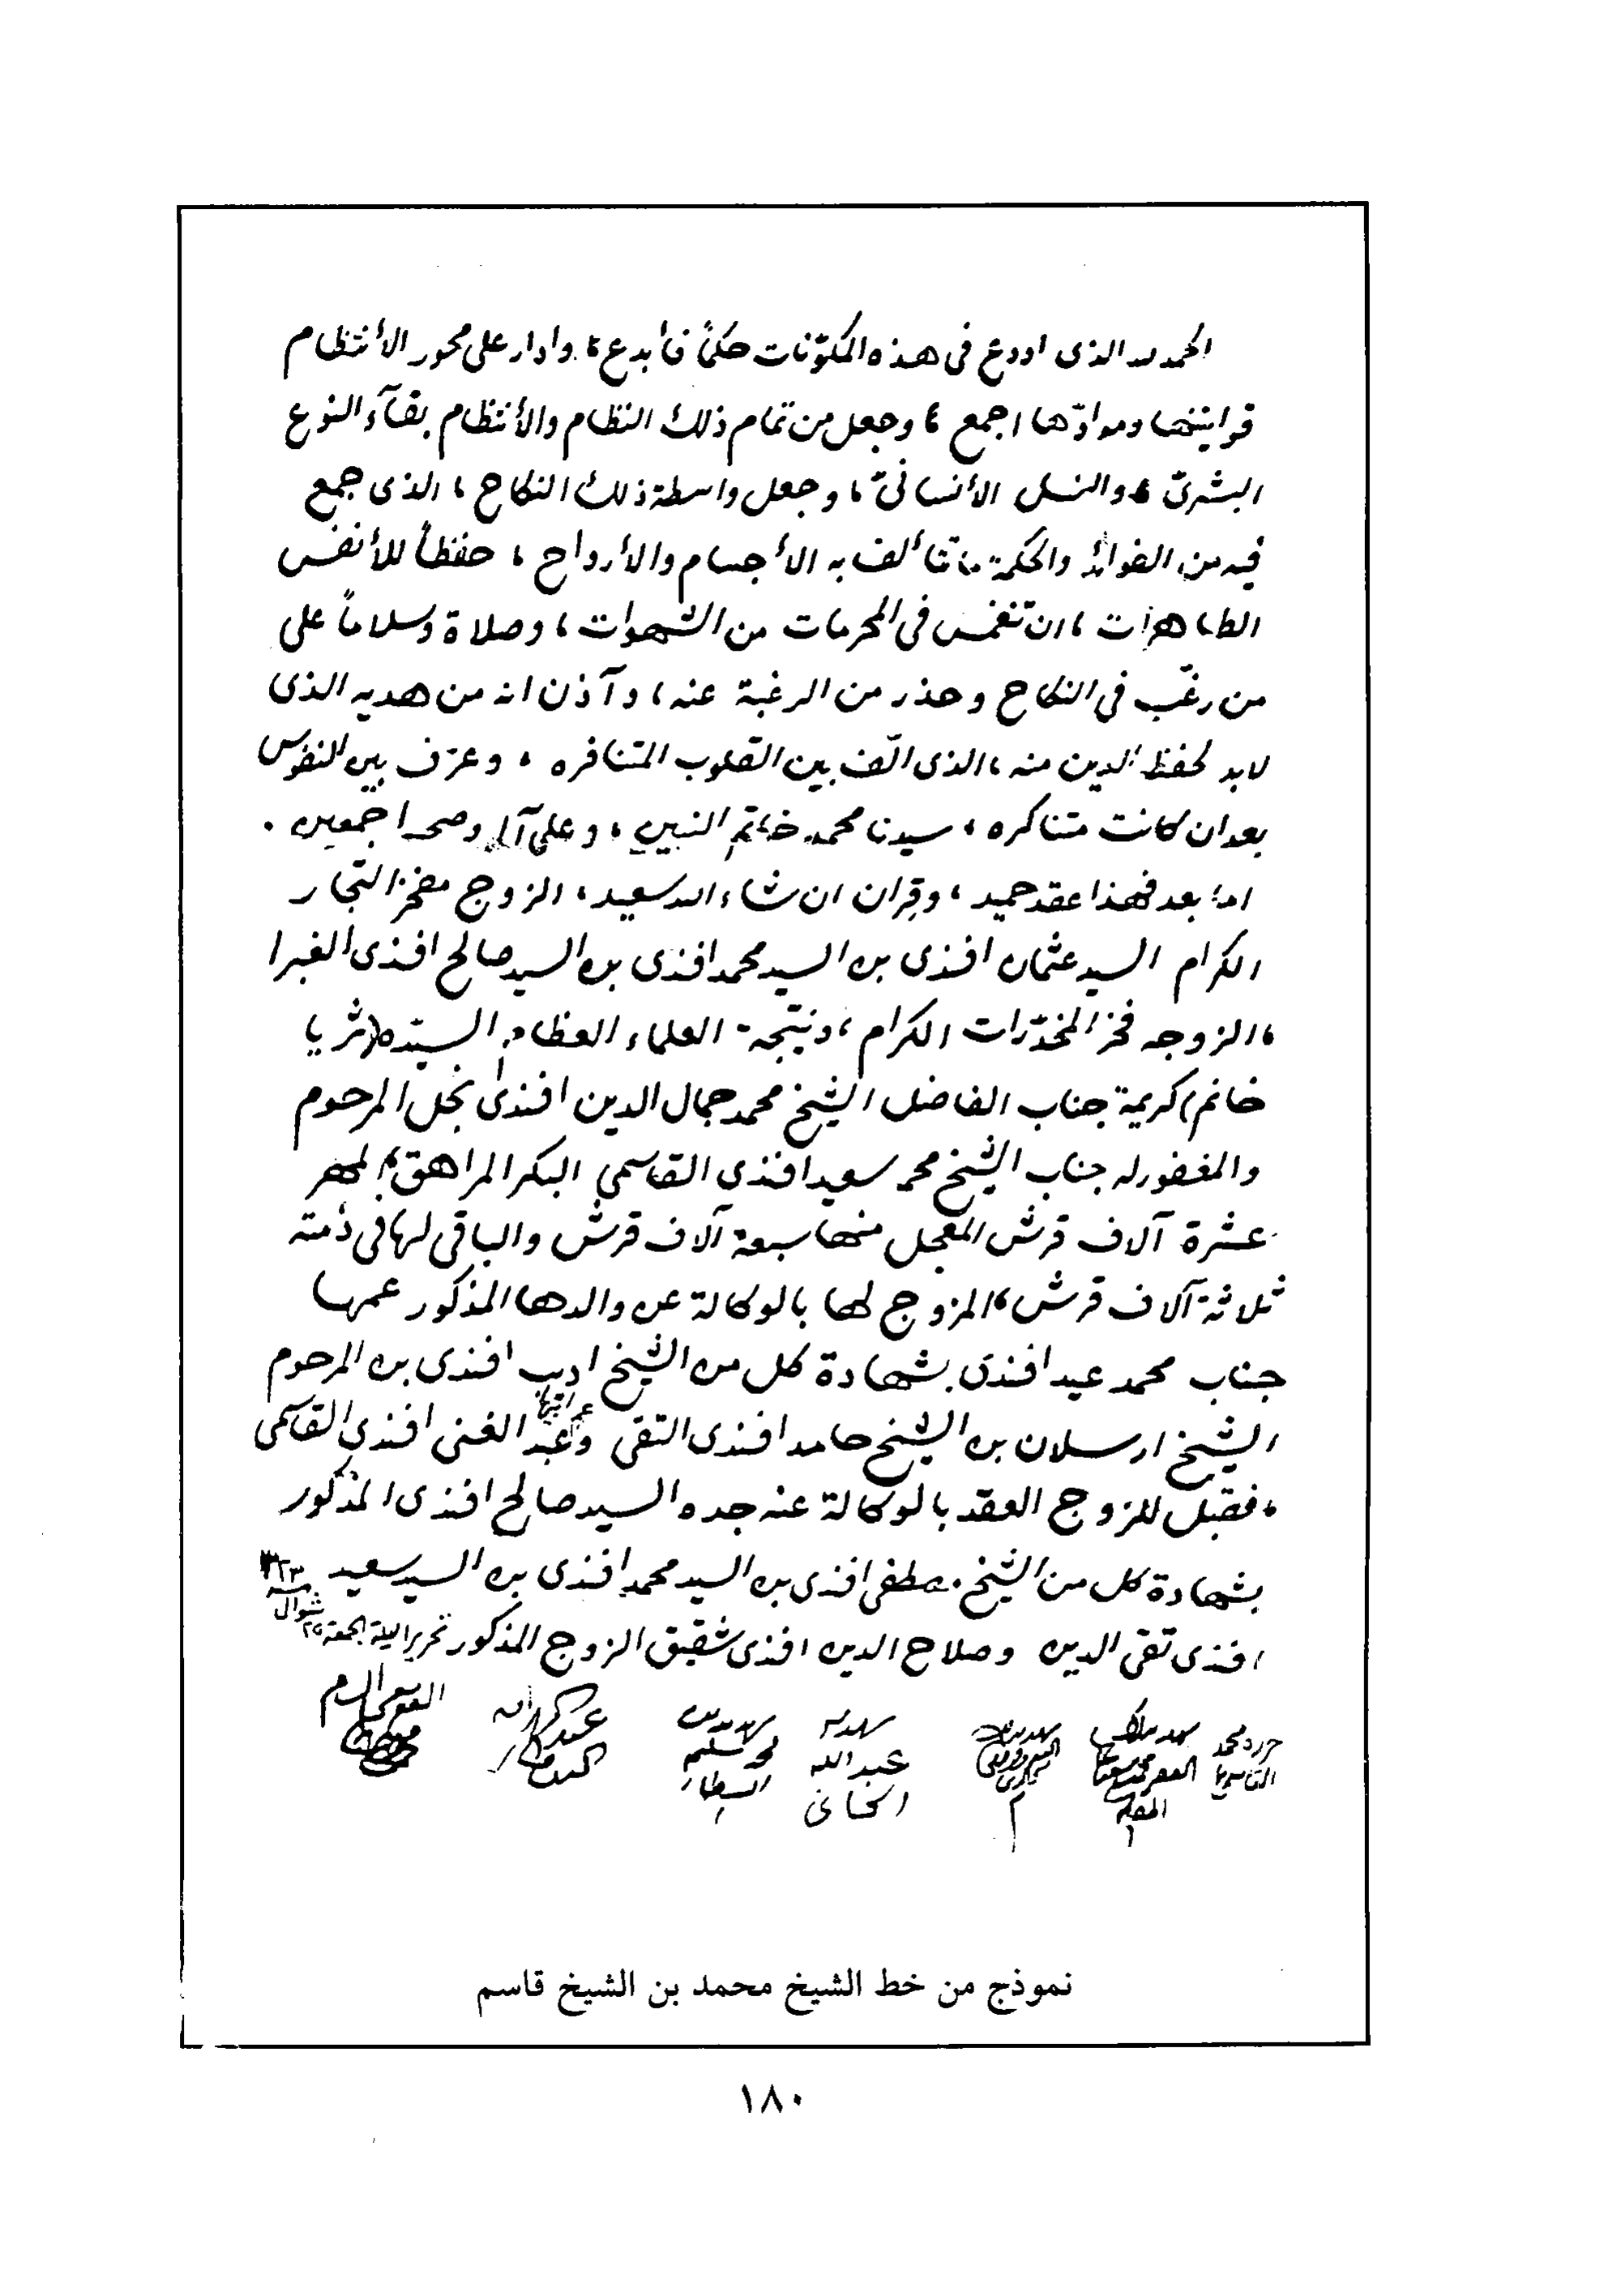 الحمد لله الذى اودع فى هذه المكوّنات حكماً فأبدع، وادار على محور الأنتظام
قوانينها وموادّها اجمع، وجعل من تمام ذلك النظام والأنتظام بقآء النوع
البشرىّ، والنسل الأنسانىّ، وجعل واسطة ذلك النكاح، الذى جمع
فيه من الفوائد والحكمة ما تتألف به الأجسام والأرواح، حفظاً للأنفس
الطاهرات، ان تنغمس فى المحرمات من الشهوات، وصلاة وسلاماً على
من رغّب فى النكاح وحذر من الرغبة عنه، وآذن انه من هديه الذى
لابد لحفظ الدين منه، الذى الّف بين القلوب المتنافره، وعرّف بين النفوس
بعد ان كانت متناكره، سيدنا محمد خاتم النبيين، وعلى آله وصحبه اجمعين.
اما بعد فهذا عقد حميد، وقِران ان شاء الله سعيد، الزوج مفخر التجار
الكرام السيد عثمان افندى بن السيد محمد افندى بن السيد صالح افندى الغبرا
، الزوجه فخر المخدّرات الكرام، ونتيجة العلماء العظام، السيّده (ثريا
خانم) كريمة جناب الفاضل الشيخ محمد جمال الدين افندى نجل المرحوم
والمغفور له جناب الشيخ محمد سعيد افندى القاسمى البكر المراهق، المهر
عشرة آلاف قرش المعجل منها سبعة آلاف قرش والباقى لها فى ذمته
ثلاثة آلاف قرش، المزوج لها بالوكالة عن والدها المذكور عمها
جناب محمد عيد افندى بشهادة كل من الشيخ اديب افندى بن المرحوم
الشيخ ارسلان بن الشيخ حامد افندى التقى وعبد الغنى افندى القاسمى
، فقبل للزوج العقد بالوكالة عنه جده السيد صالح افندى المذكور
بشهادة كل من الشيخ مصطفى افندى بن السيد محمد افندى بن السيد سعيد
افندى تقى الدين وصلاح الدين افندى شقيق الزوج المذكور تحريرا ليلة الجمعة ٢٥ شوال سنة
عبد الله
الخانى
محمد سليم
نموذج من خط الشيخ محمد بن الشيخ قاسم
١٨٠